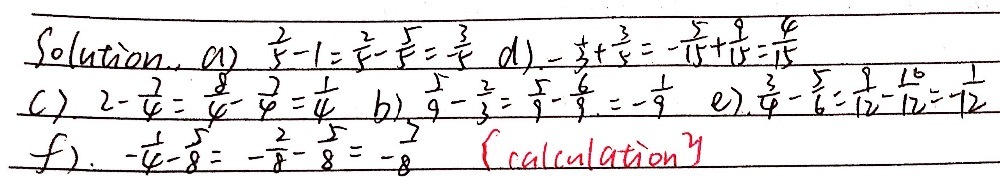 Solution. a) 2/5 - 1 = 2/5 - 5/5 = -3/5 d). -1/3 + 3/5 = -5/15 + 9/15 = 4/15
c). 2 - 7/4 = 8/4 - 7/4 = 1/4 b) 5/9 - 2/3 = 5/9 - 6/9 = -1/9 e). 3/4 - 5/6 = 9/12 - 10/12 = -1/12
f). -1/4 - 5/8 = -2/8 - 5/8 = -7/8 {calculation}